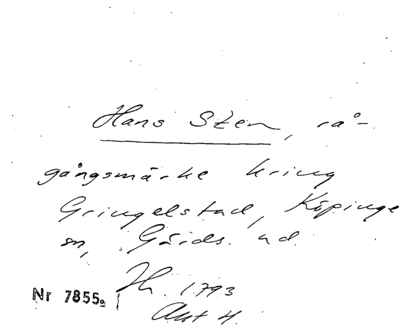 Hans Sten, rå-
gångsmärke kring
Gringelstad, Köpinge
sn, Gärds hd.
Jh. 1793
Akt 4.
Nr 7855a